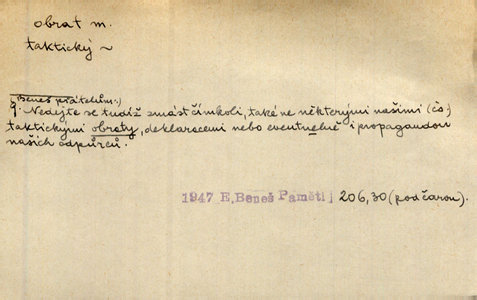 obrat m.
taktický ~
(Beneš přátelům:)
9. Nedejte se tudíž zmást čímkoli, také ne některými našimi (čs.)
taktickými obraty, deklaracemi nebo eventuelně i propagandou
našich odpůrců.
1947 E. Beneš Paměti 206,30 (pod čarou).